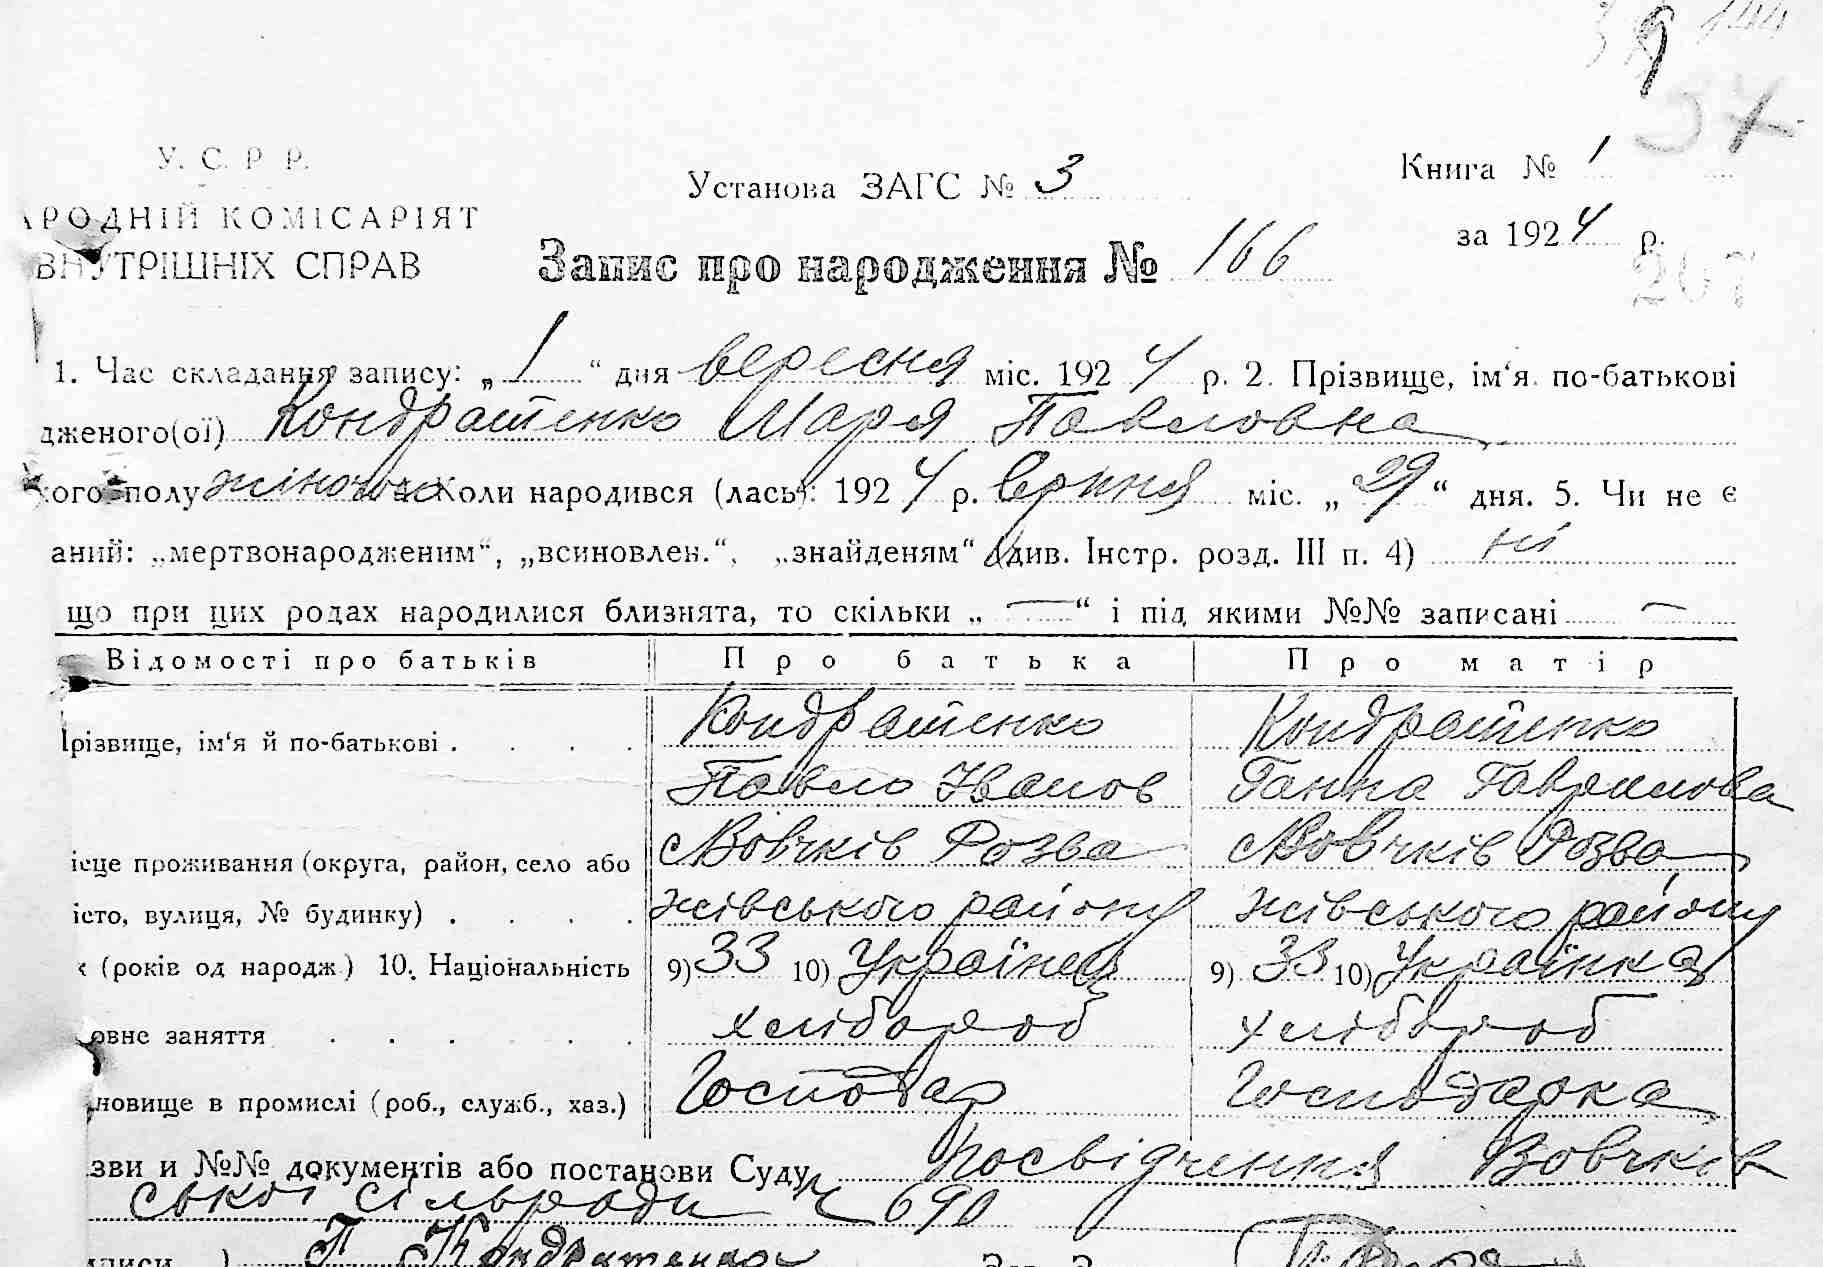 144
9
37
У. С. Р. Р.
АРОДНІЙ КОМІСАРІЯТ
ВНУТРІШНІХ СПРАВ
Установа ЗАГС № 3
Книга № 1
за 1924 р.
Запис про народження № 166
207
1. Час складання запису: „ 1 “ дня вересня міс. 1924 р. 2. Прізвище, ім‘я по-батькові
дженого(ої) Кондратенко Марья Павловна
кого полу жіночого Коли народився (лась): 1924 р. Серпня міс. „ 29 “ дня. 5. Чи не є
аний: „мертвонародженим“, „всиновлен.“, „знайденям“ (див. Інстр. розд. III п. 4) ні
що при цих родах народилися близнята, то скільки „ — “ і під якими №№ записані —
Відомості про батьків Про батька Про матір
Прізвище, ім‘я й по-батькові . . . . Кондратенко Кондратенко
Павло Іванов Ганна Гаврилова
ісце проживання (округа, район, село або с Вовчків Розва с Вовчків Розва
істо, вулиця, № будинку) . . . . жівського району жівського району
к (років од народж.) 10. Національність 9) 33 10) Українец 9) 33 10) Українка
овне заняття . . . . . . хлібороб хлібороб
новище в промислі (роб., служб., хаз.) Господар Господарка
зви и №№ документів або постанови Суду посвідчення Вовчків
ської сільради ч 690
дписи ) П Кондратенко